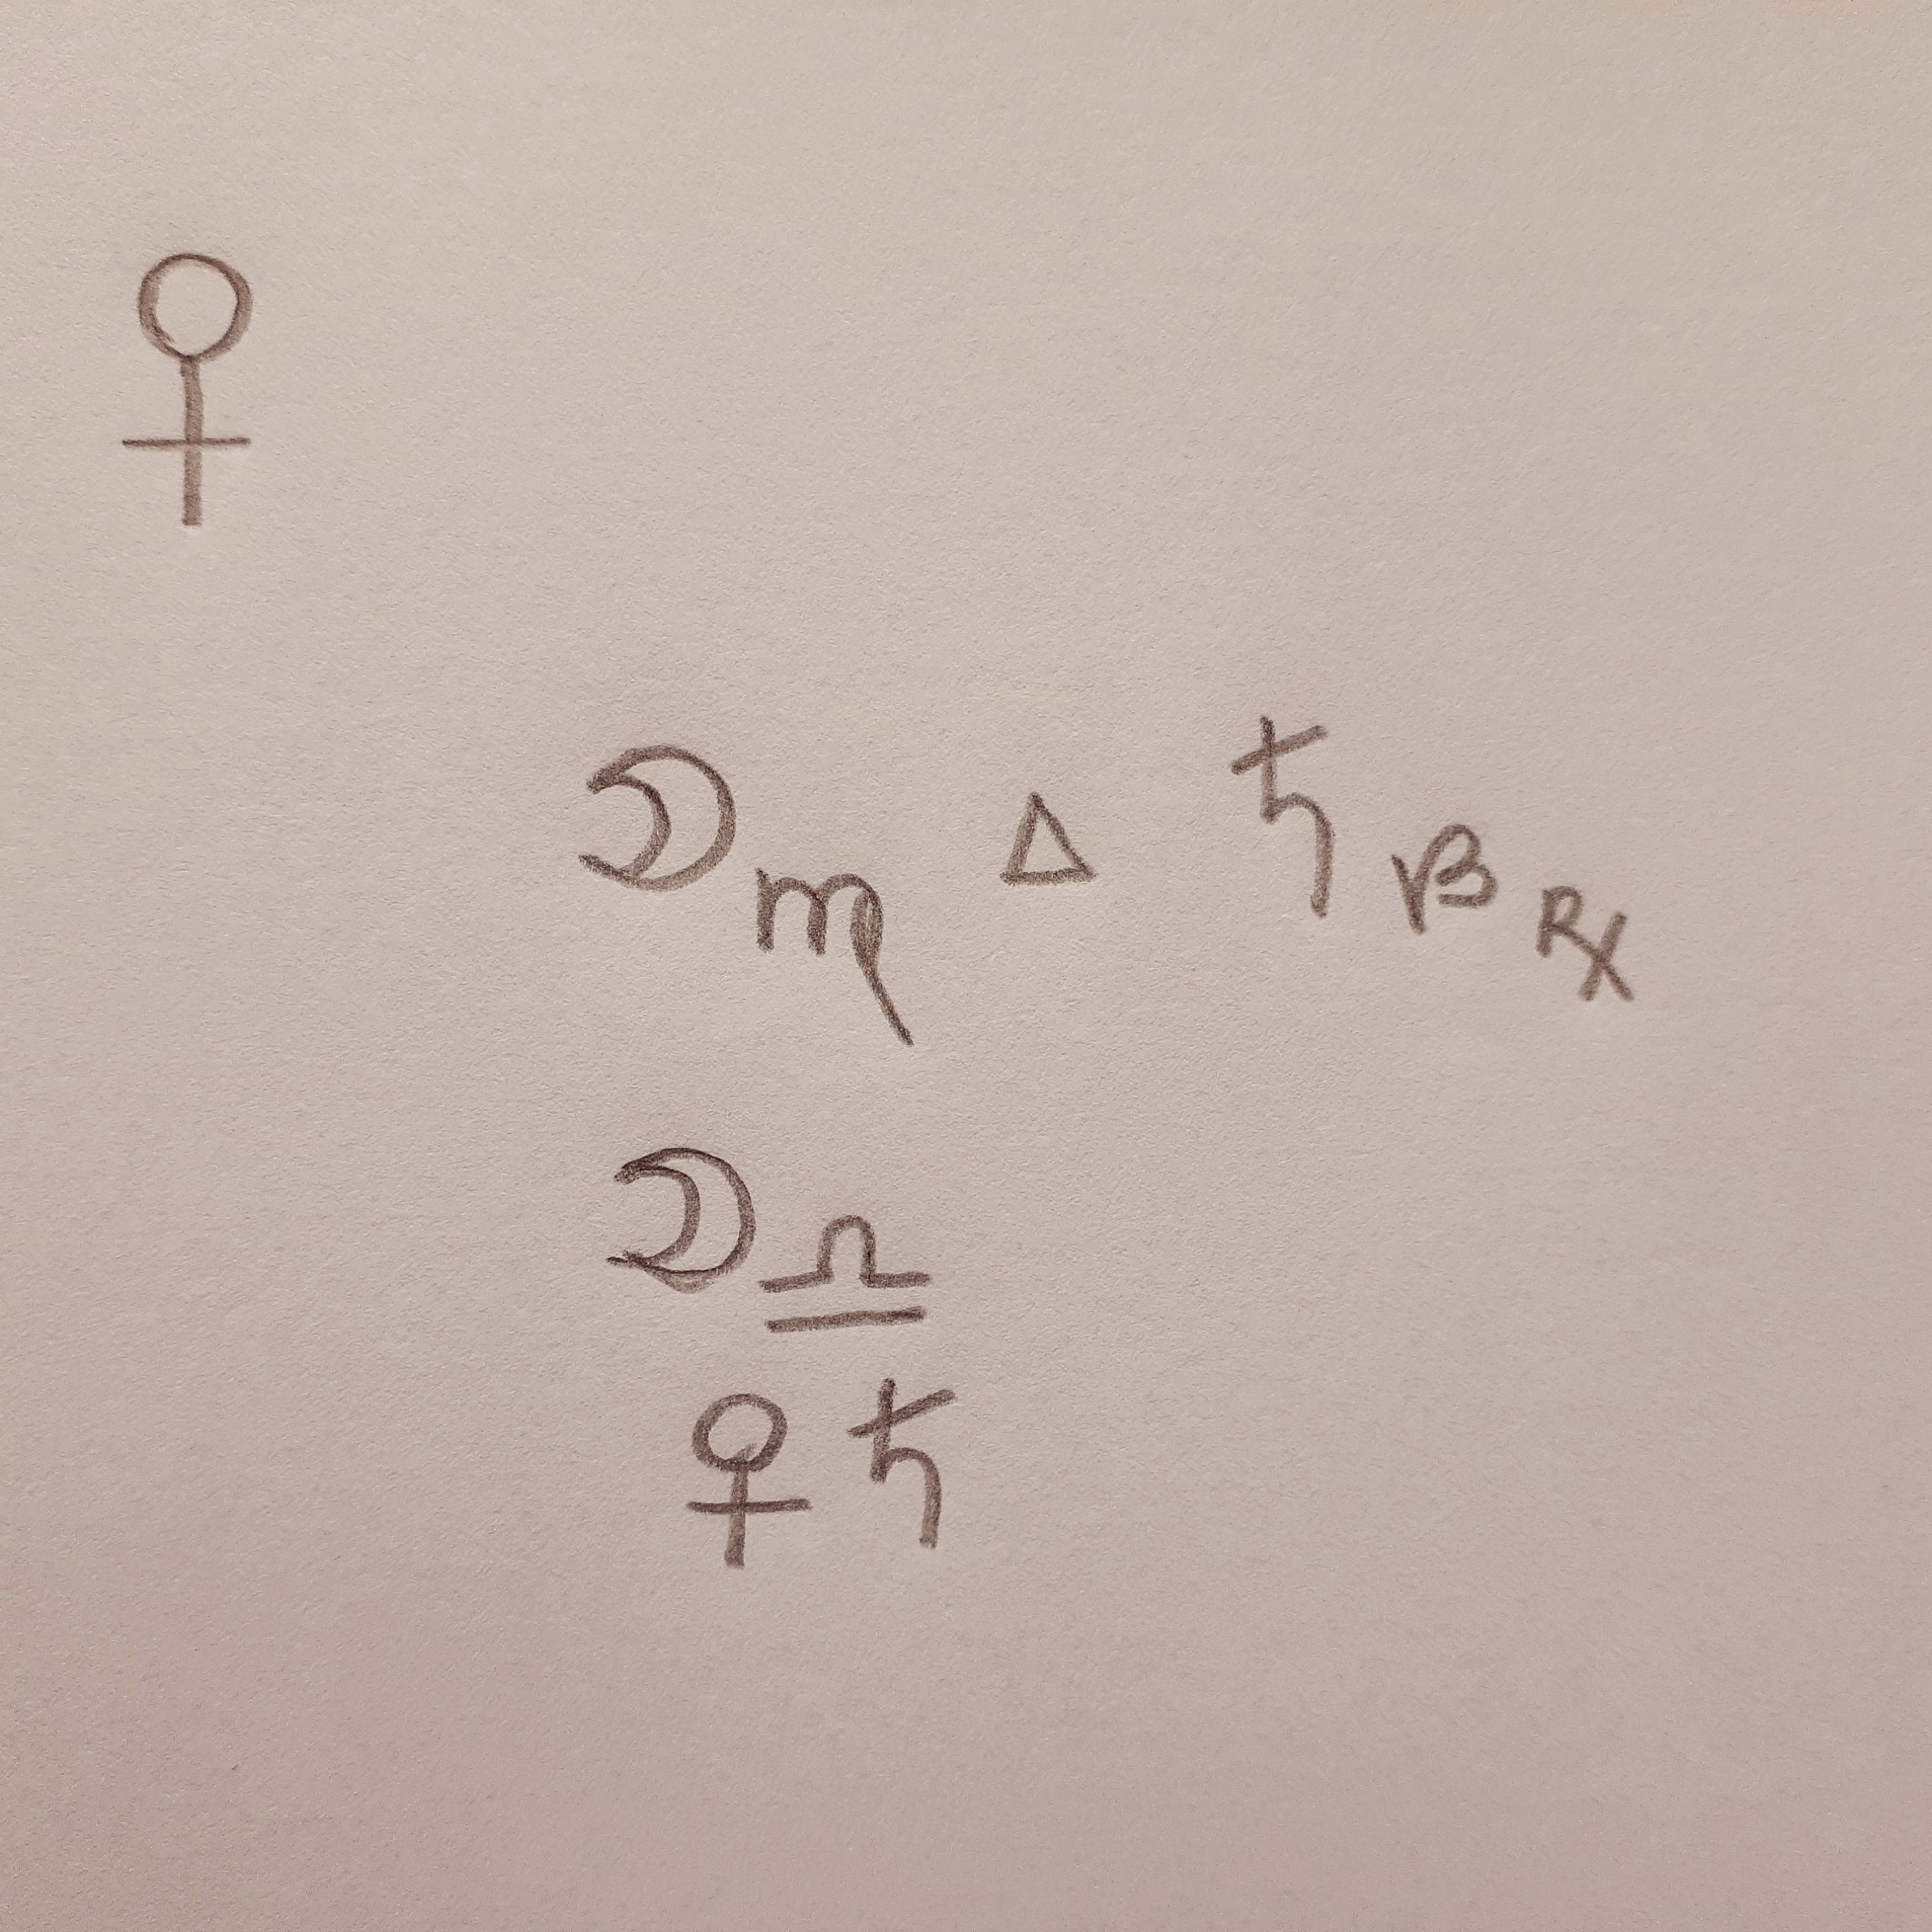 ♀
☽ ♍ △ ♄ ♑ ℞
☽ ♎
♀ ♄